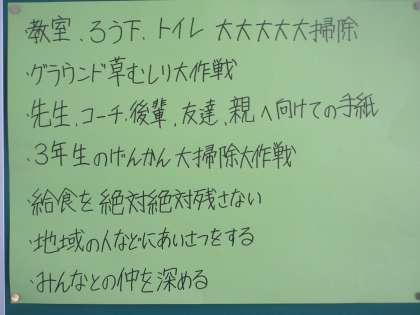 ・教室、ろう下、トイレ 大大大大大掃除
・グラウンド草むしり大作戦
・先生、コーチ、後輩、友達、親へ向けての手紙
・3年生のげんかん大掃除大作戦
・給食を絶対絶対残さない
・地域の人などにあいさつをする
・みんなとの仲を深める